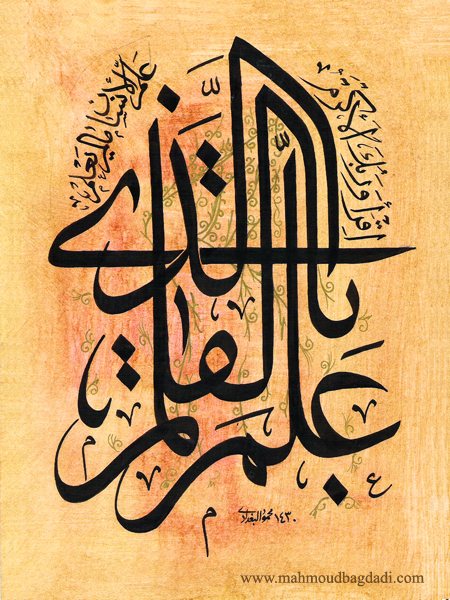 اقرأ وربك الأكرم
الذي علم بالقلم
علم الإنسان ما لم يعلم
١٤٣٠ محمود البغدادي
www.mahmoudbagdadi.com